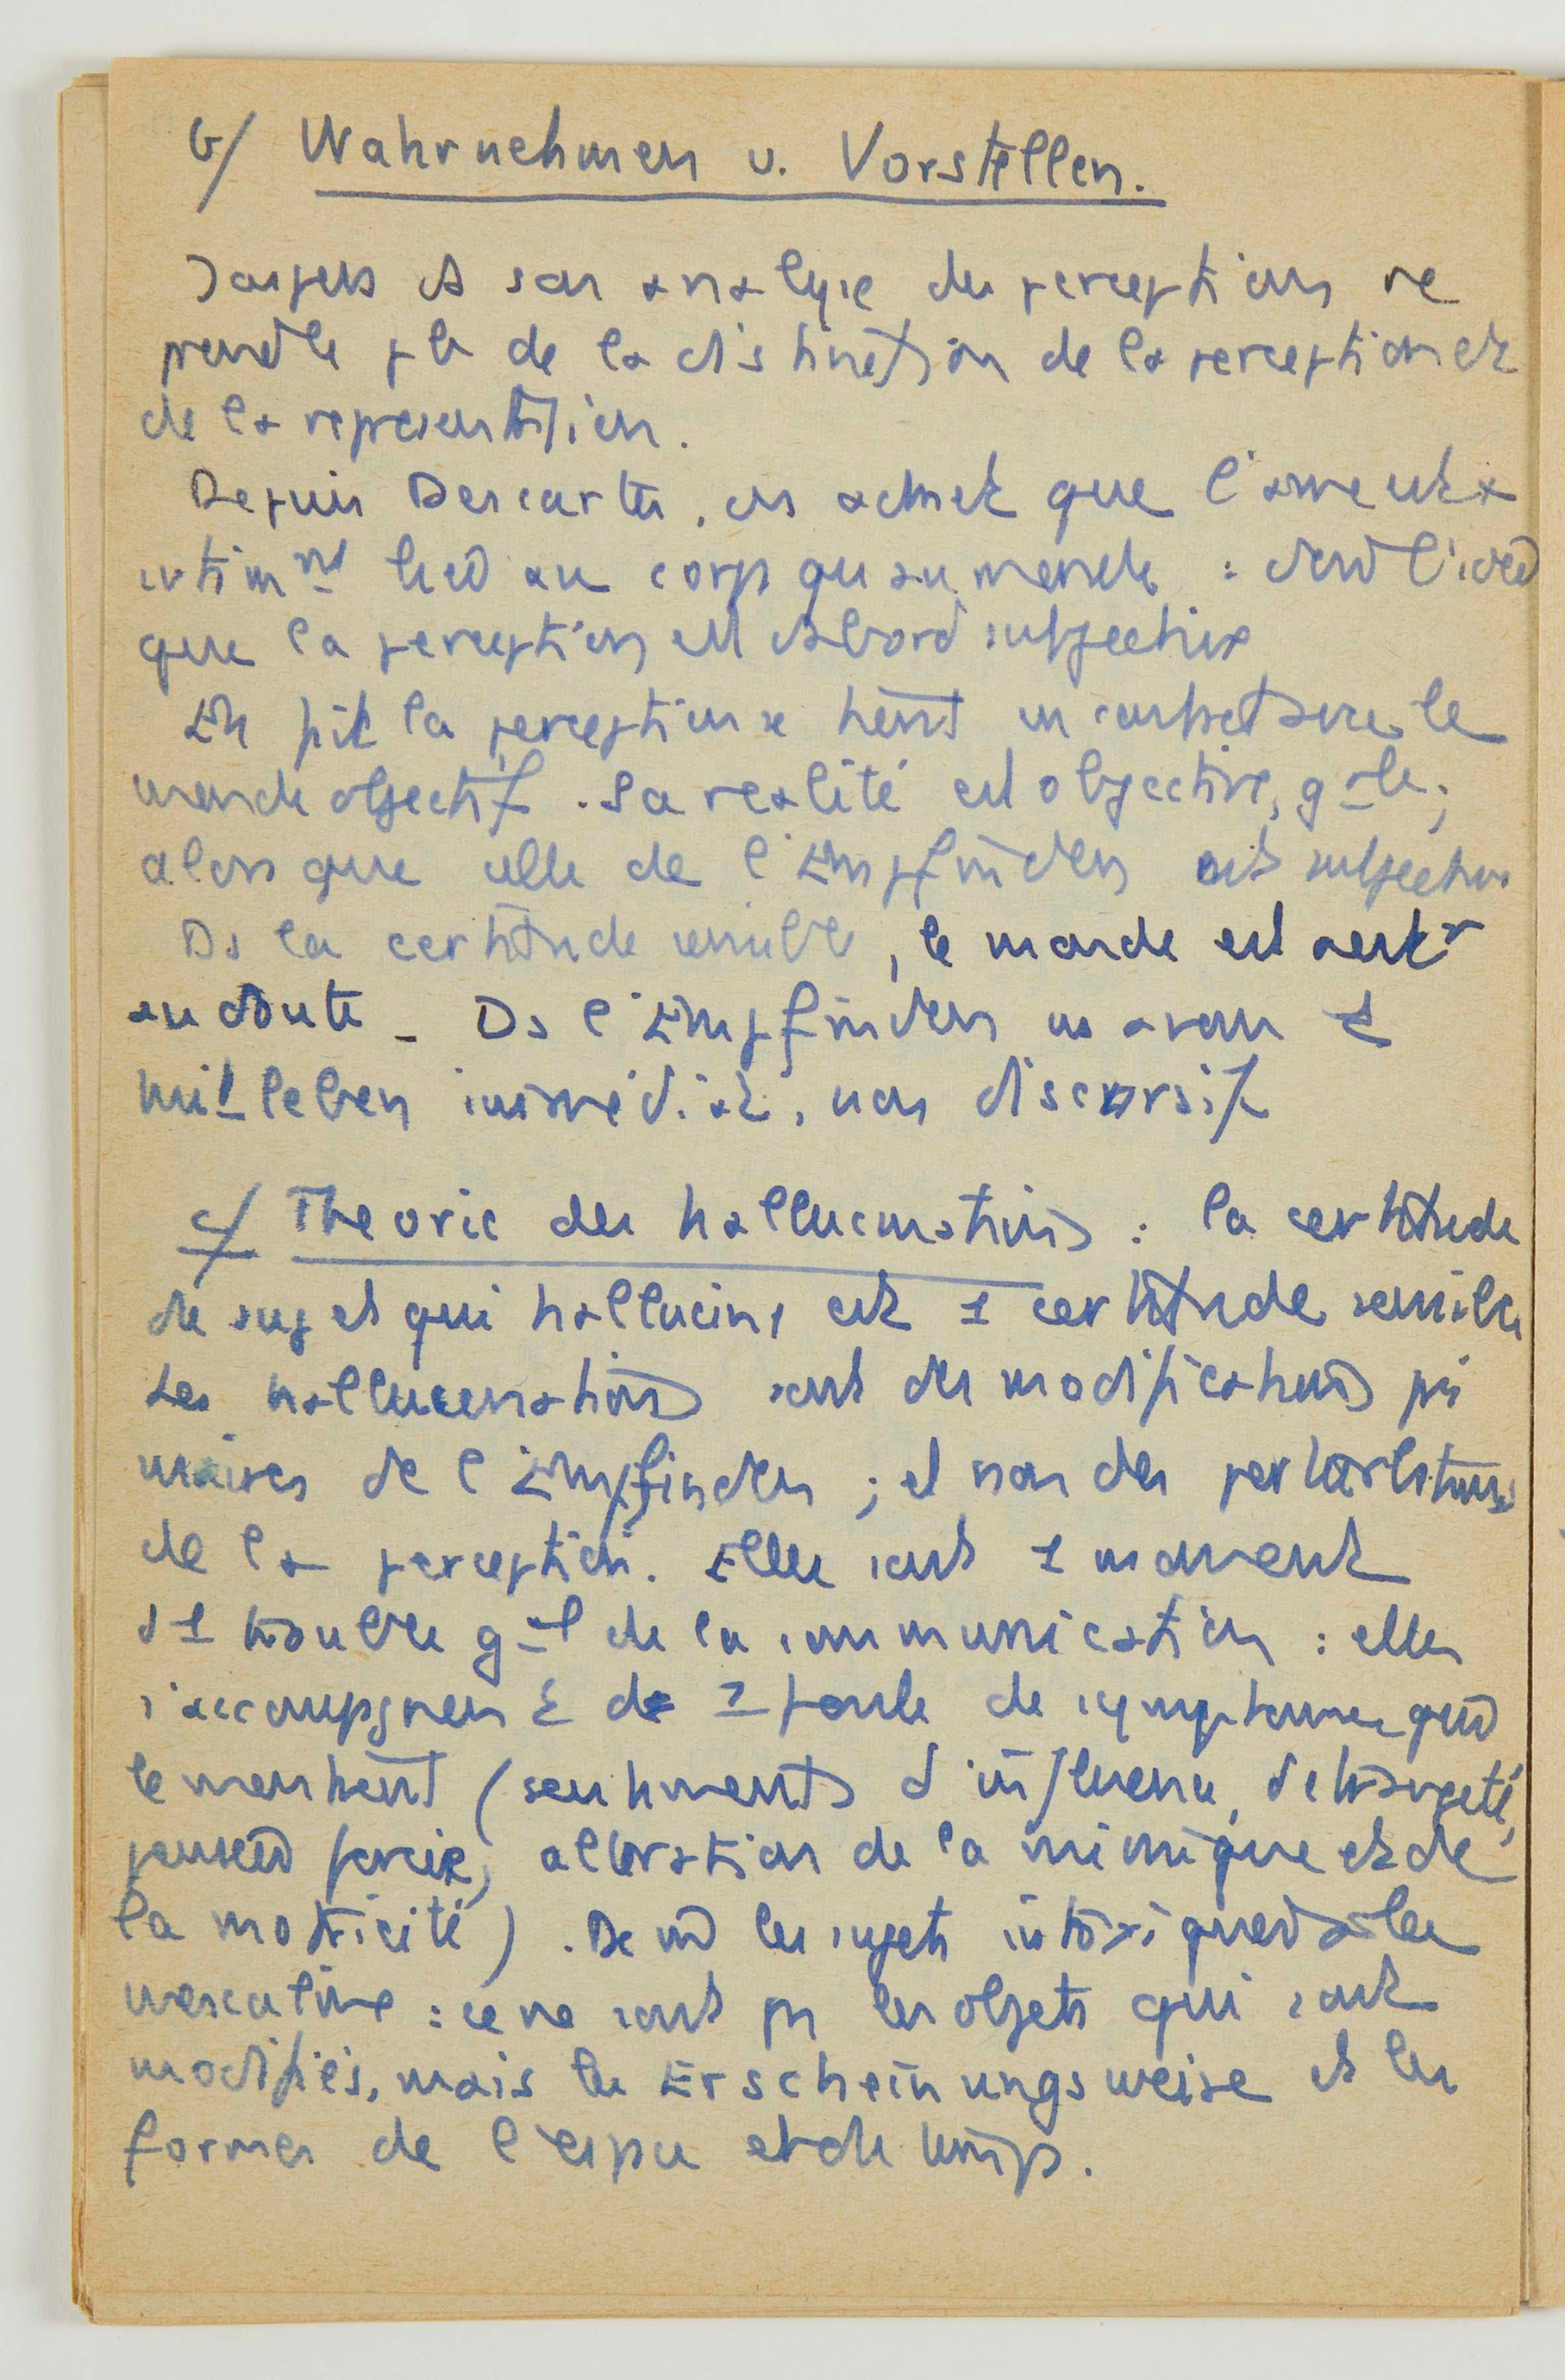 b/ Wahrnehmen u. Vorstellen.
Jaspers ds son analyse des perceptions re
prend le pb de la distinction de la perception et
de la representation.
Depuis Descartes, on admet que l'ame est
intimnt liée au corps qu'au monde : d'où l'idée
que la perception est d'abord subjective
En fait la perception se tient en contact avec le
monde objectif. Sa realité est objective, gle ;
alors que celle de l'Empfinden est subjective
Ds la certitude sensible, le monde est
au doute - Ds l'Empfinden ns avons 1
mit leben immédiat, non discursif
c/ Theorie des hallucinations : la certitude
du sujet qui hallucine est 1 certitude sensible
Les hallucinations sont des modifications pri
maires de l'Empfinden ; et non des perturbations
de la perception. Elles sont 1 moment
d'1 trouble gal de la communication : elles
s'accompagnent de 1 foule de symptomes qui
le montrent (sentiments d'influence, d'etrangeté,
pensée forcée, alteration de la mimique et de
la motricité). De m les sujets intoxiqués à la
mescaline : ce ne sont pas les objets qui sont
modifiés, mais les Erscheinungsweise et les
formes de l'espace et du temps.